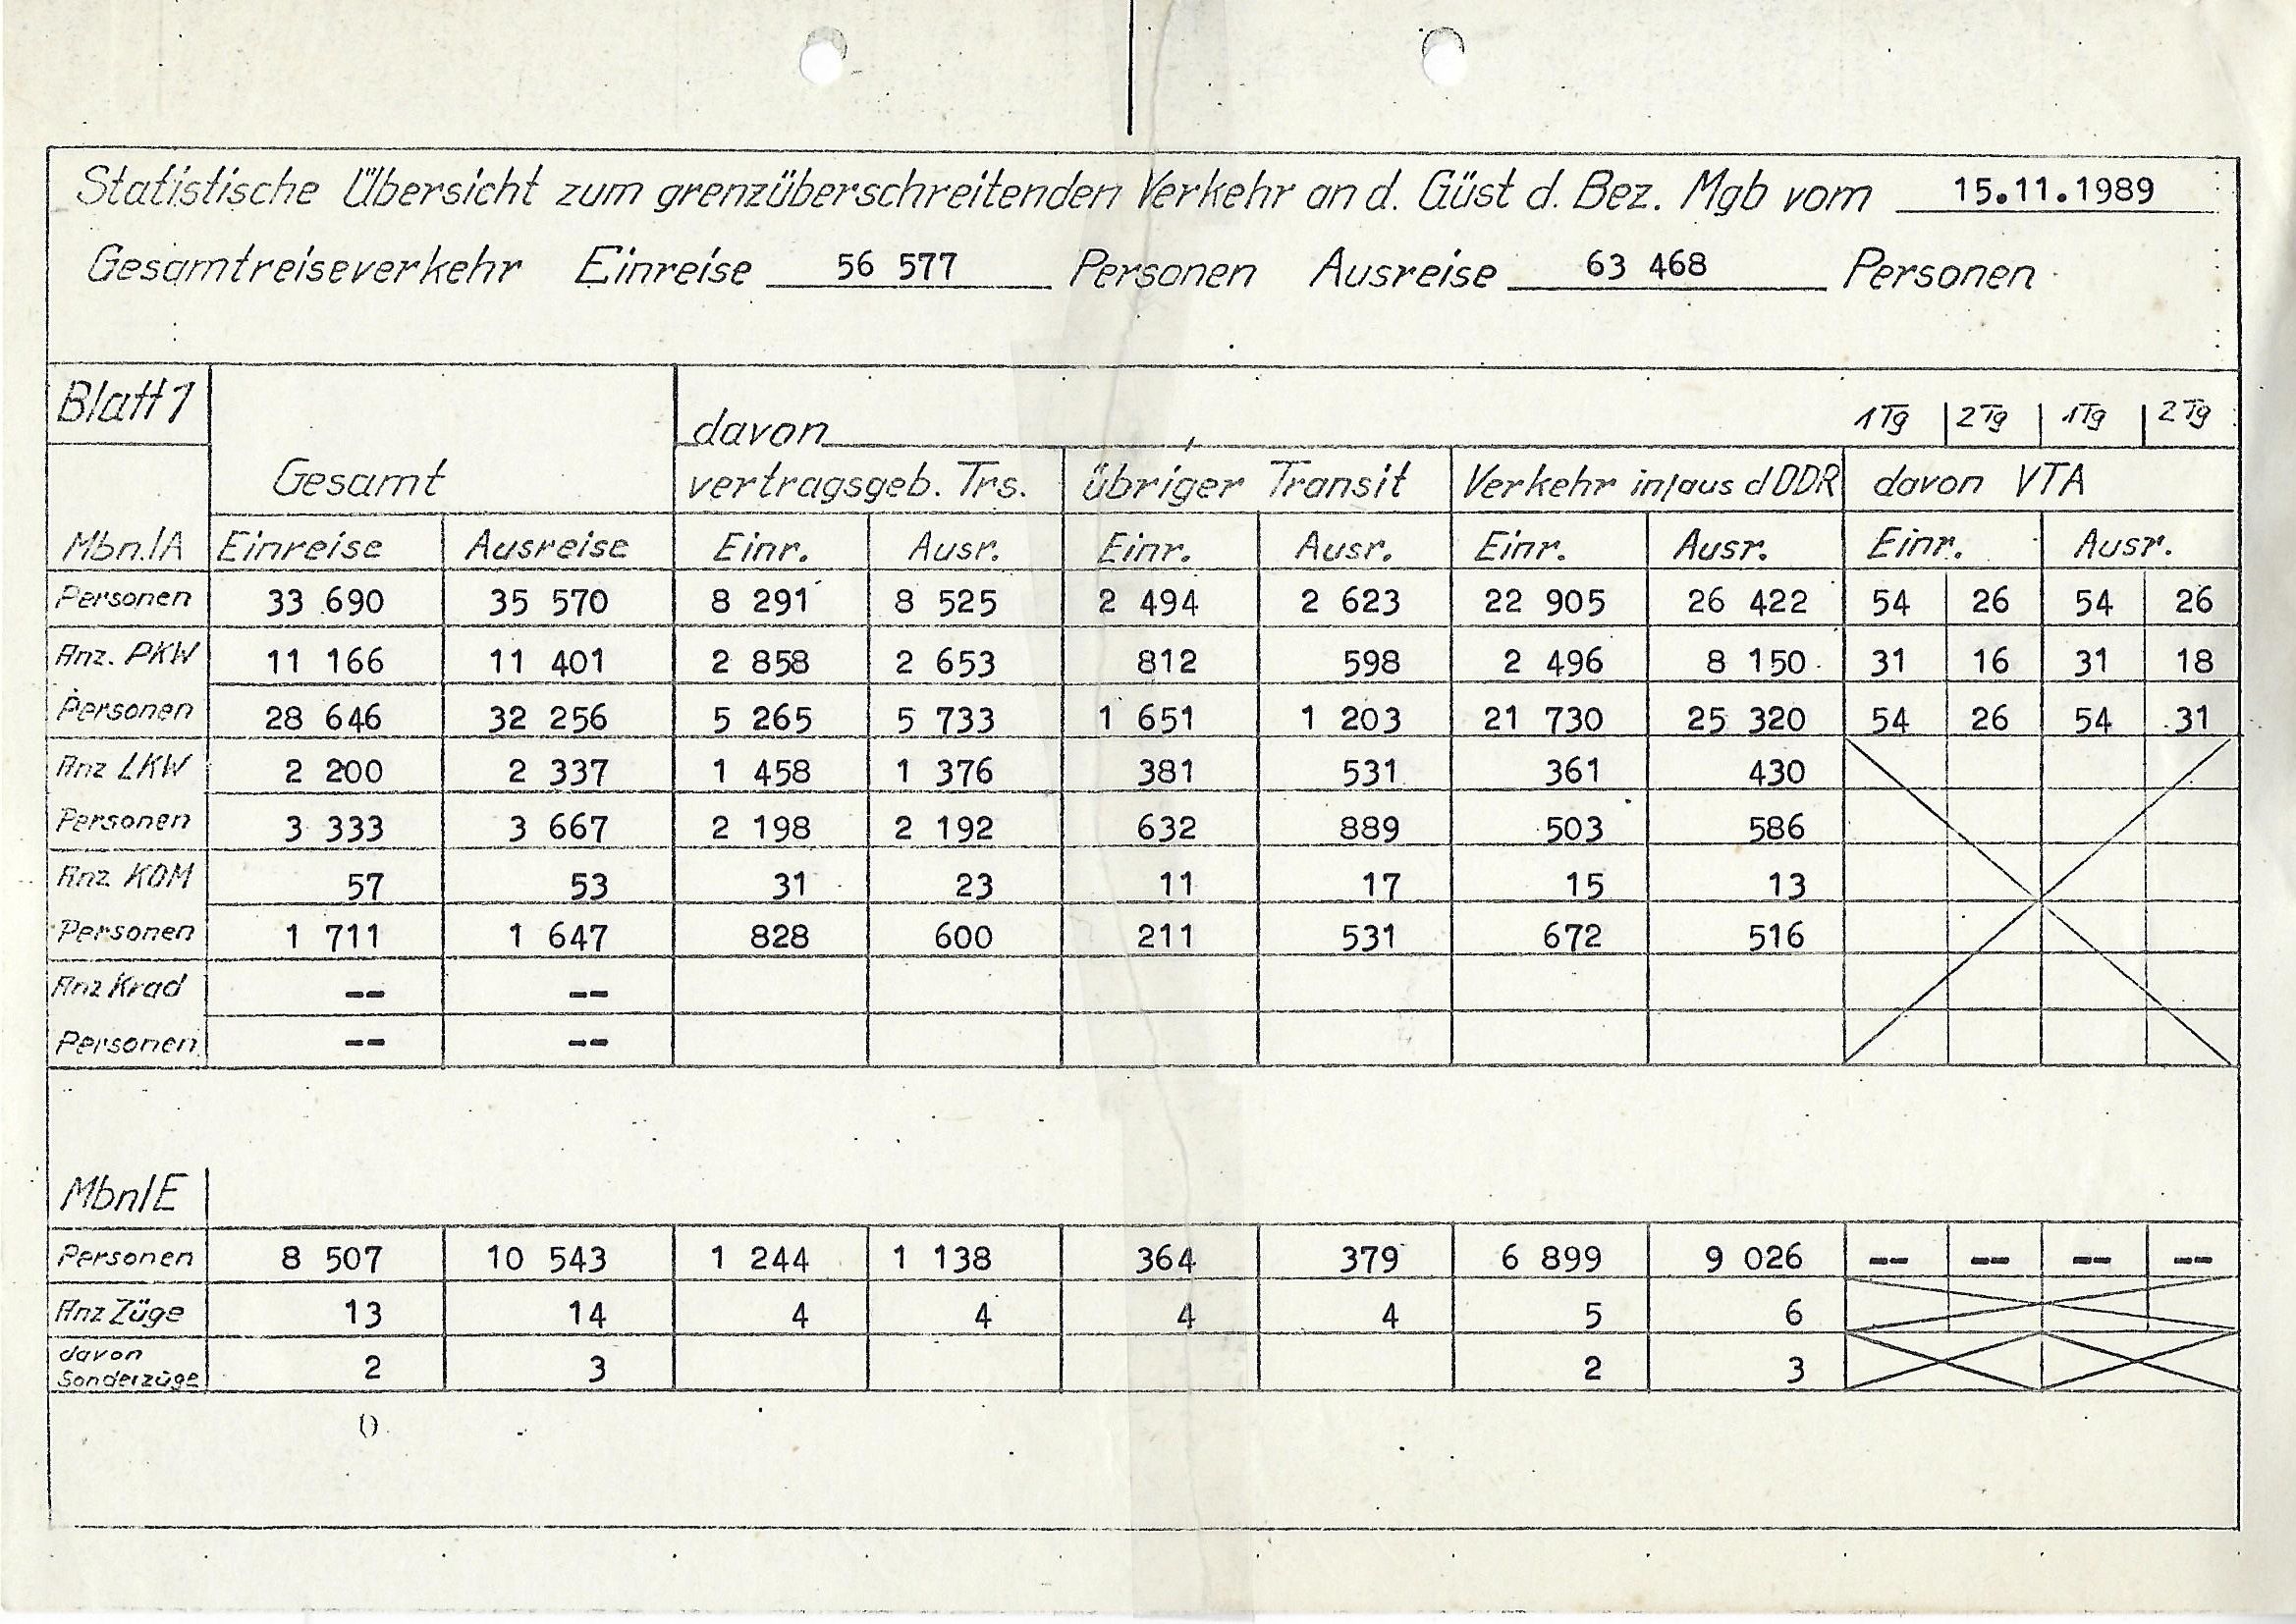 Statistische Übersicht zum grenzüberschreitenden Verkehr an d. Güst d. Bez. Mgb vom 15.11.1989
Gesamtreiseverkehr Einreise 56 577 Personen Ausreise 63 468 Personen
Blatt 1 davon 1 Tg 2 Tg 1 Tg 2 Tg
Gesamt vertragsgeb. Trs. übriger Transit Verkehr in/aus d DDR davon VTA
Mbn./A Einreise Ausreise Einr. Ausr. Einr. Ausr. Einr. Ausr. Einr. Ausr.
Personen 33 690 35 570 8 291 8 525 2 494 2 623 22 905 26 422 54 26 54 26
Anz. PKW 11 166 11 401 2 858 2 653 812 598 2 496 8 150 31 16 31 18
Personen 28 646 32 256 5 265 5 733 1 651 1 203 21 730 25 320 54 26 54 31
Anz LKW 2 200 2 337 1 458 1 376 381 531 361 430
Personen 3 333 3 667 2 198 2 192 632 889 503 586
Anz KOM 57 53 31 23 11 17 15 13
Personen 1 711 1 647 828 600 211 531 672 516
Anz Krad -- --
Personen -- --
Mbn/E
Personen 8 507 10 543 1 244 1 138 364 379 6 899 9 026 -- -- -- --
Anz Züge 13 14 4 4 4 4 5 6
davon
Sonderzüge 2 3 2 3